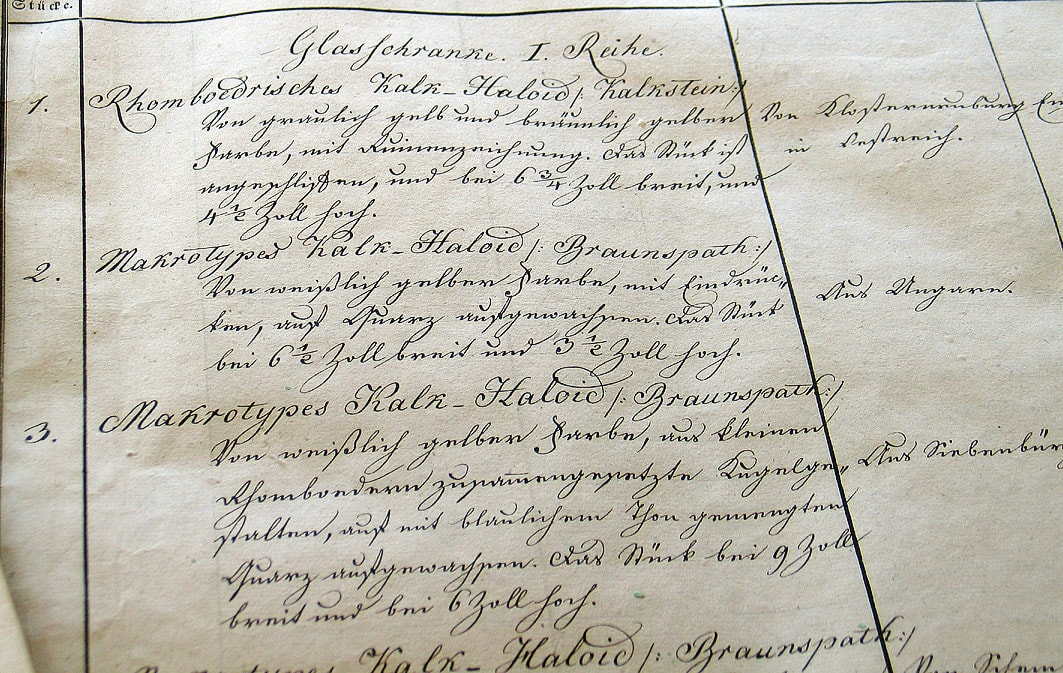 Stücke.
Glasschranke. I. Reihe.
1. Rhomboedrisches Kalk-Haloid /: Kalkstein :/
Von graulich gelb und bräunlich gelber
Farbe, mit Ruinenzeichnung. Das Stück ist
angeschliffen, und bei 6 3/4 Zoll breit, und
4 1/2 Zoll hoch.
Von Klosterneuburg
in Oestreich.
2. Makrotypes Kalk-Haloid /: Braunspath :/
Von weißlich gelber Farbe, mit Eindrü-
cken, auf Quarz aufgewachsen. Das Stück
bei 6 1/2 Zoll breit und 3 1/2 Zoll hoch.
Aus Ungarn.
3. Makrotypes Kalk-Haloid /: Braunspath :/
Von weißlich gelber Farbe, aus kleinen
Rhomboedern zusammengesetzte Kugelge-
stalten, auf mit blaulichem Thon gemengten
Quarz aufgewachsen. Das Stück bei 9 Zoll
breit und bei 6 Zoll hoch.
Aus Siebenbür
Kalk-Haloid /: Braunspath :/
Von Schem